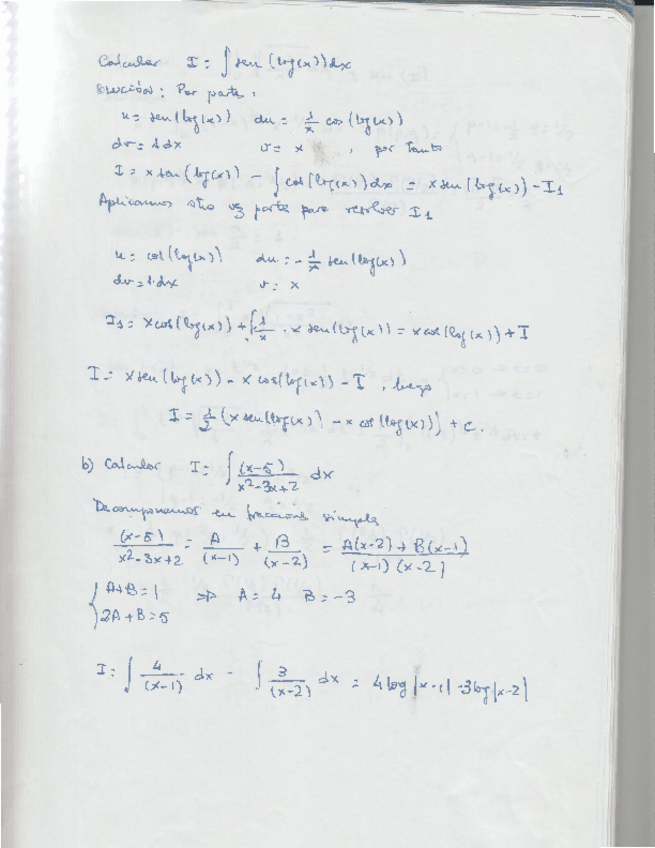 Calcular I = ∫ sen(log(x)) dx
Solución: Por partes,
u = sen(log(x)) du = 1/x cos(log(x))
dv = 1·dx v = x , por tanto
I = x sen(log(x)) - ∫ cos(log(x)) dx = x sen(log(x)) - I1
Aplicamos otra vez partes para resolver I1
u = cos(log(x)) du = -1/x sen(log(x))
dv = 1·dx v = x
I1 = x cos(log(x)) + ∫ 1/x · x sen(log(x)) = x cos(log(x)) + I
I = x sen(log(x)) - x cos(log(x)) - I , luego
I = 1/2 (x sen(log(x)) - x cos(log(x))) + c.
b) Calcular I = ∫ (x-5)/(x²-3x+2) dx
Descomponemos en fracciones simples
(x-5)/(x²-3x+2) = A/(x-1) + B/(x-2) = (A(x-2) + B(x-1))/((x-1)(x-2))
{ A+B = 1 => A = 4 B = -3
2A+B = 5
I = ∫ 4/(x-1) dx - ∫ 3/(x-2) dx = 4 log|x-1| - 3 log|x-2|